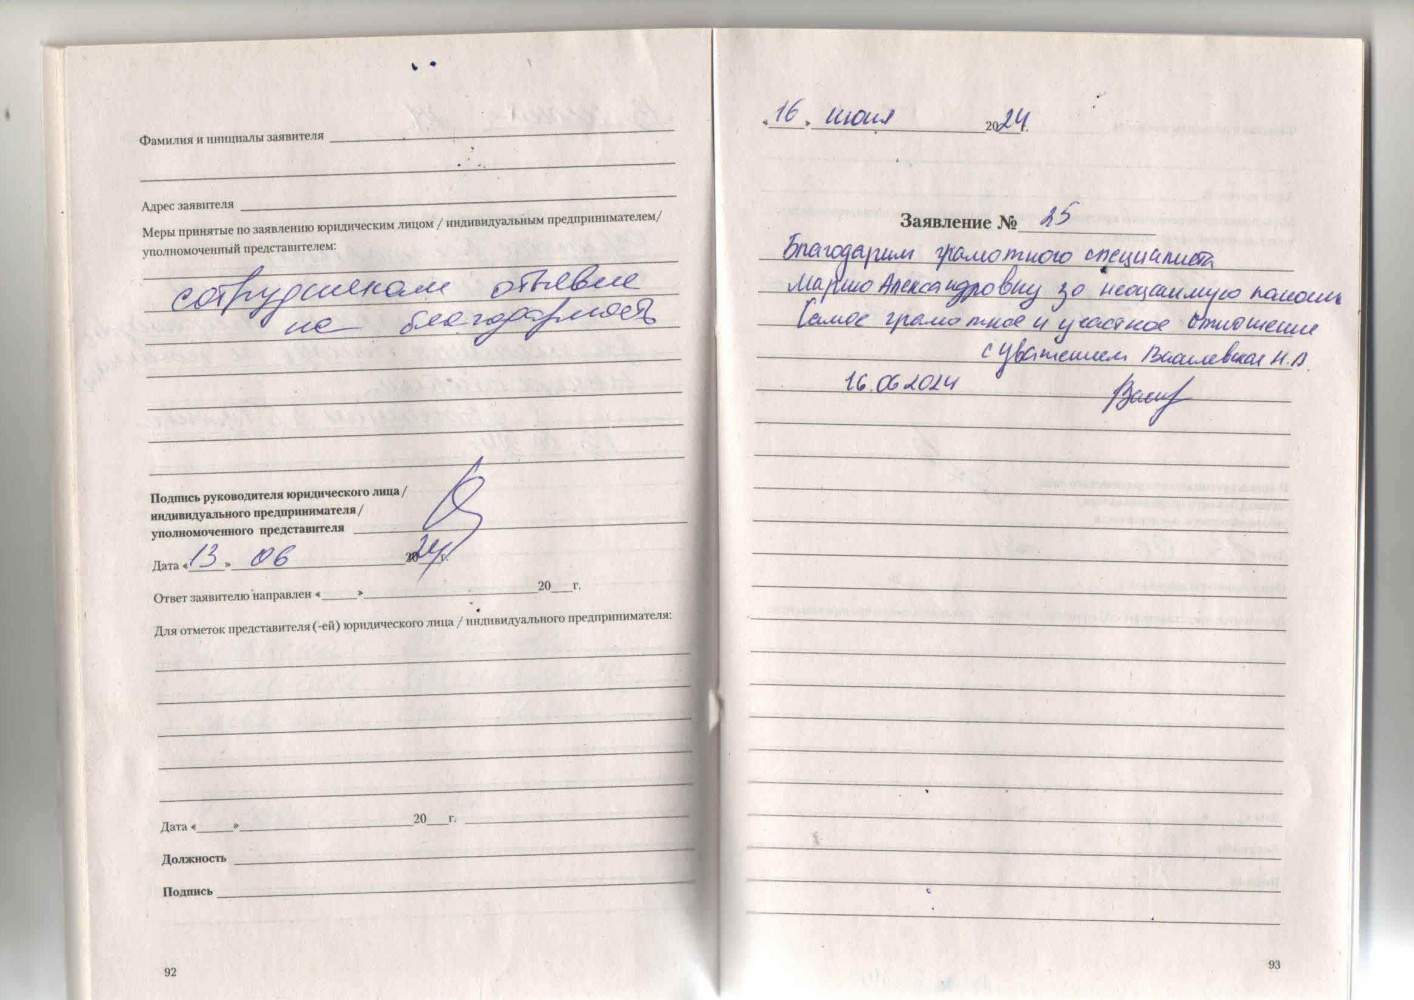 Фамилия и инициалы заявителя
Адрес заявителя
Меры принятые по заявлению юридическим лицом / индивидуальным предпринимателем/
уполномоченный представителем:
сотрудникам объявле
на благодарность
Подпись руководителя юридического лица /
индивидуального предпринимателя /
уполномоченного представителя
Дата «13» 06 2024 г.
Ответ заявителю направлен «     » 20   г.
Для отметок представителя (-ей) юридического лица / индивидуального предпринимателя:
Дата «     » 20   г.
Должность
Подпись
92
«16» июня 2024 г.
Заявление № 25
Благодарим грамотного специалиста
Марию Александровну за неоценимую помощь
Самое грамотное и участное отношение
с уважением Василевская Н.А.
16.06 2024
93